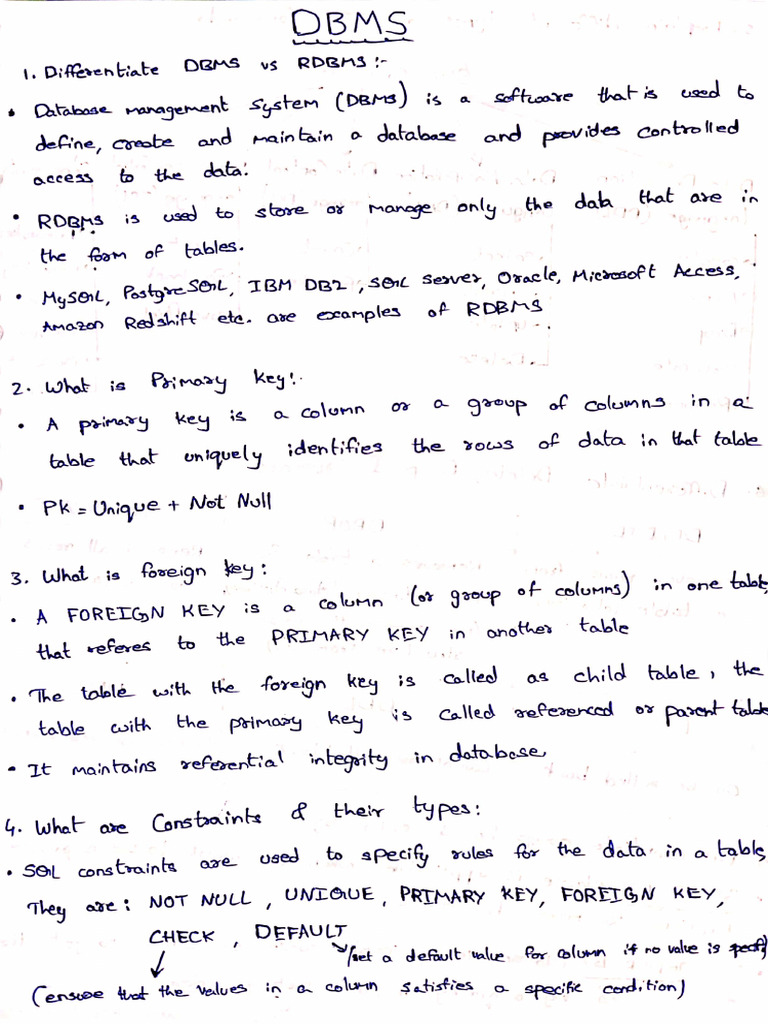 DBMS
1. Differentiate DBMS vs RDBMS:-
• Database management System (DBMS) is a software that is used to
define, create and maintain a database and provides controlled
access to the data.
• RDBMS is used to store or manage only the data that are in
the form of tables.
• MySQL, PostgreSQL, IBM DB2, SQL Server, Oracle, Microsoft Access,
Amazon Redshift etc. are examples of RDBMS
2. What is Primary Key:-
• A primary key is a column or a group of columns in a
table that uniquely identifies the rows of data in that table
• Pk = Unique + Not Null
3. What is foreign key:
• A FOREIGN KEY is a column (or group of columns) in one table,
that referes to the PRIMARY KEY in another table
• The table with the foreign key is called as child table, the
table with the primary key is called referenced or parent table
• It maintains referential integrity in database
4. What are Constraints & their types:
• SQL constraints are used to specify rules for the data in a table,
They are: NOT NULL, UNIQUE, PRIMARY KEY, FOREIGN KEY,
CHECK, DEFAULT
(set a default value for column if no value is
(ensure that the values in a column satisfies a specific condition)